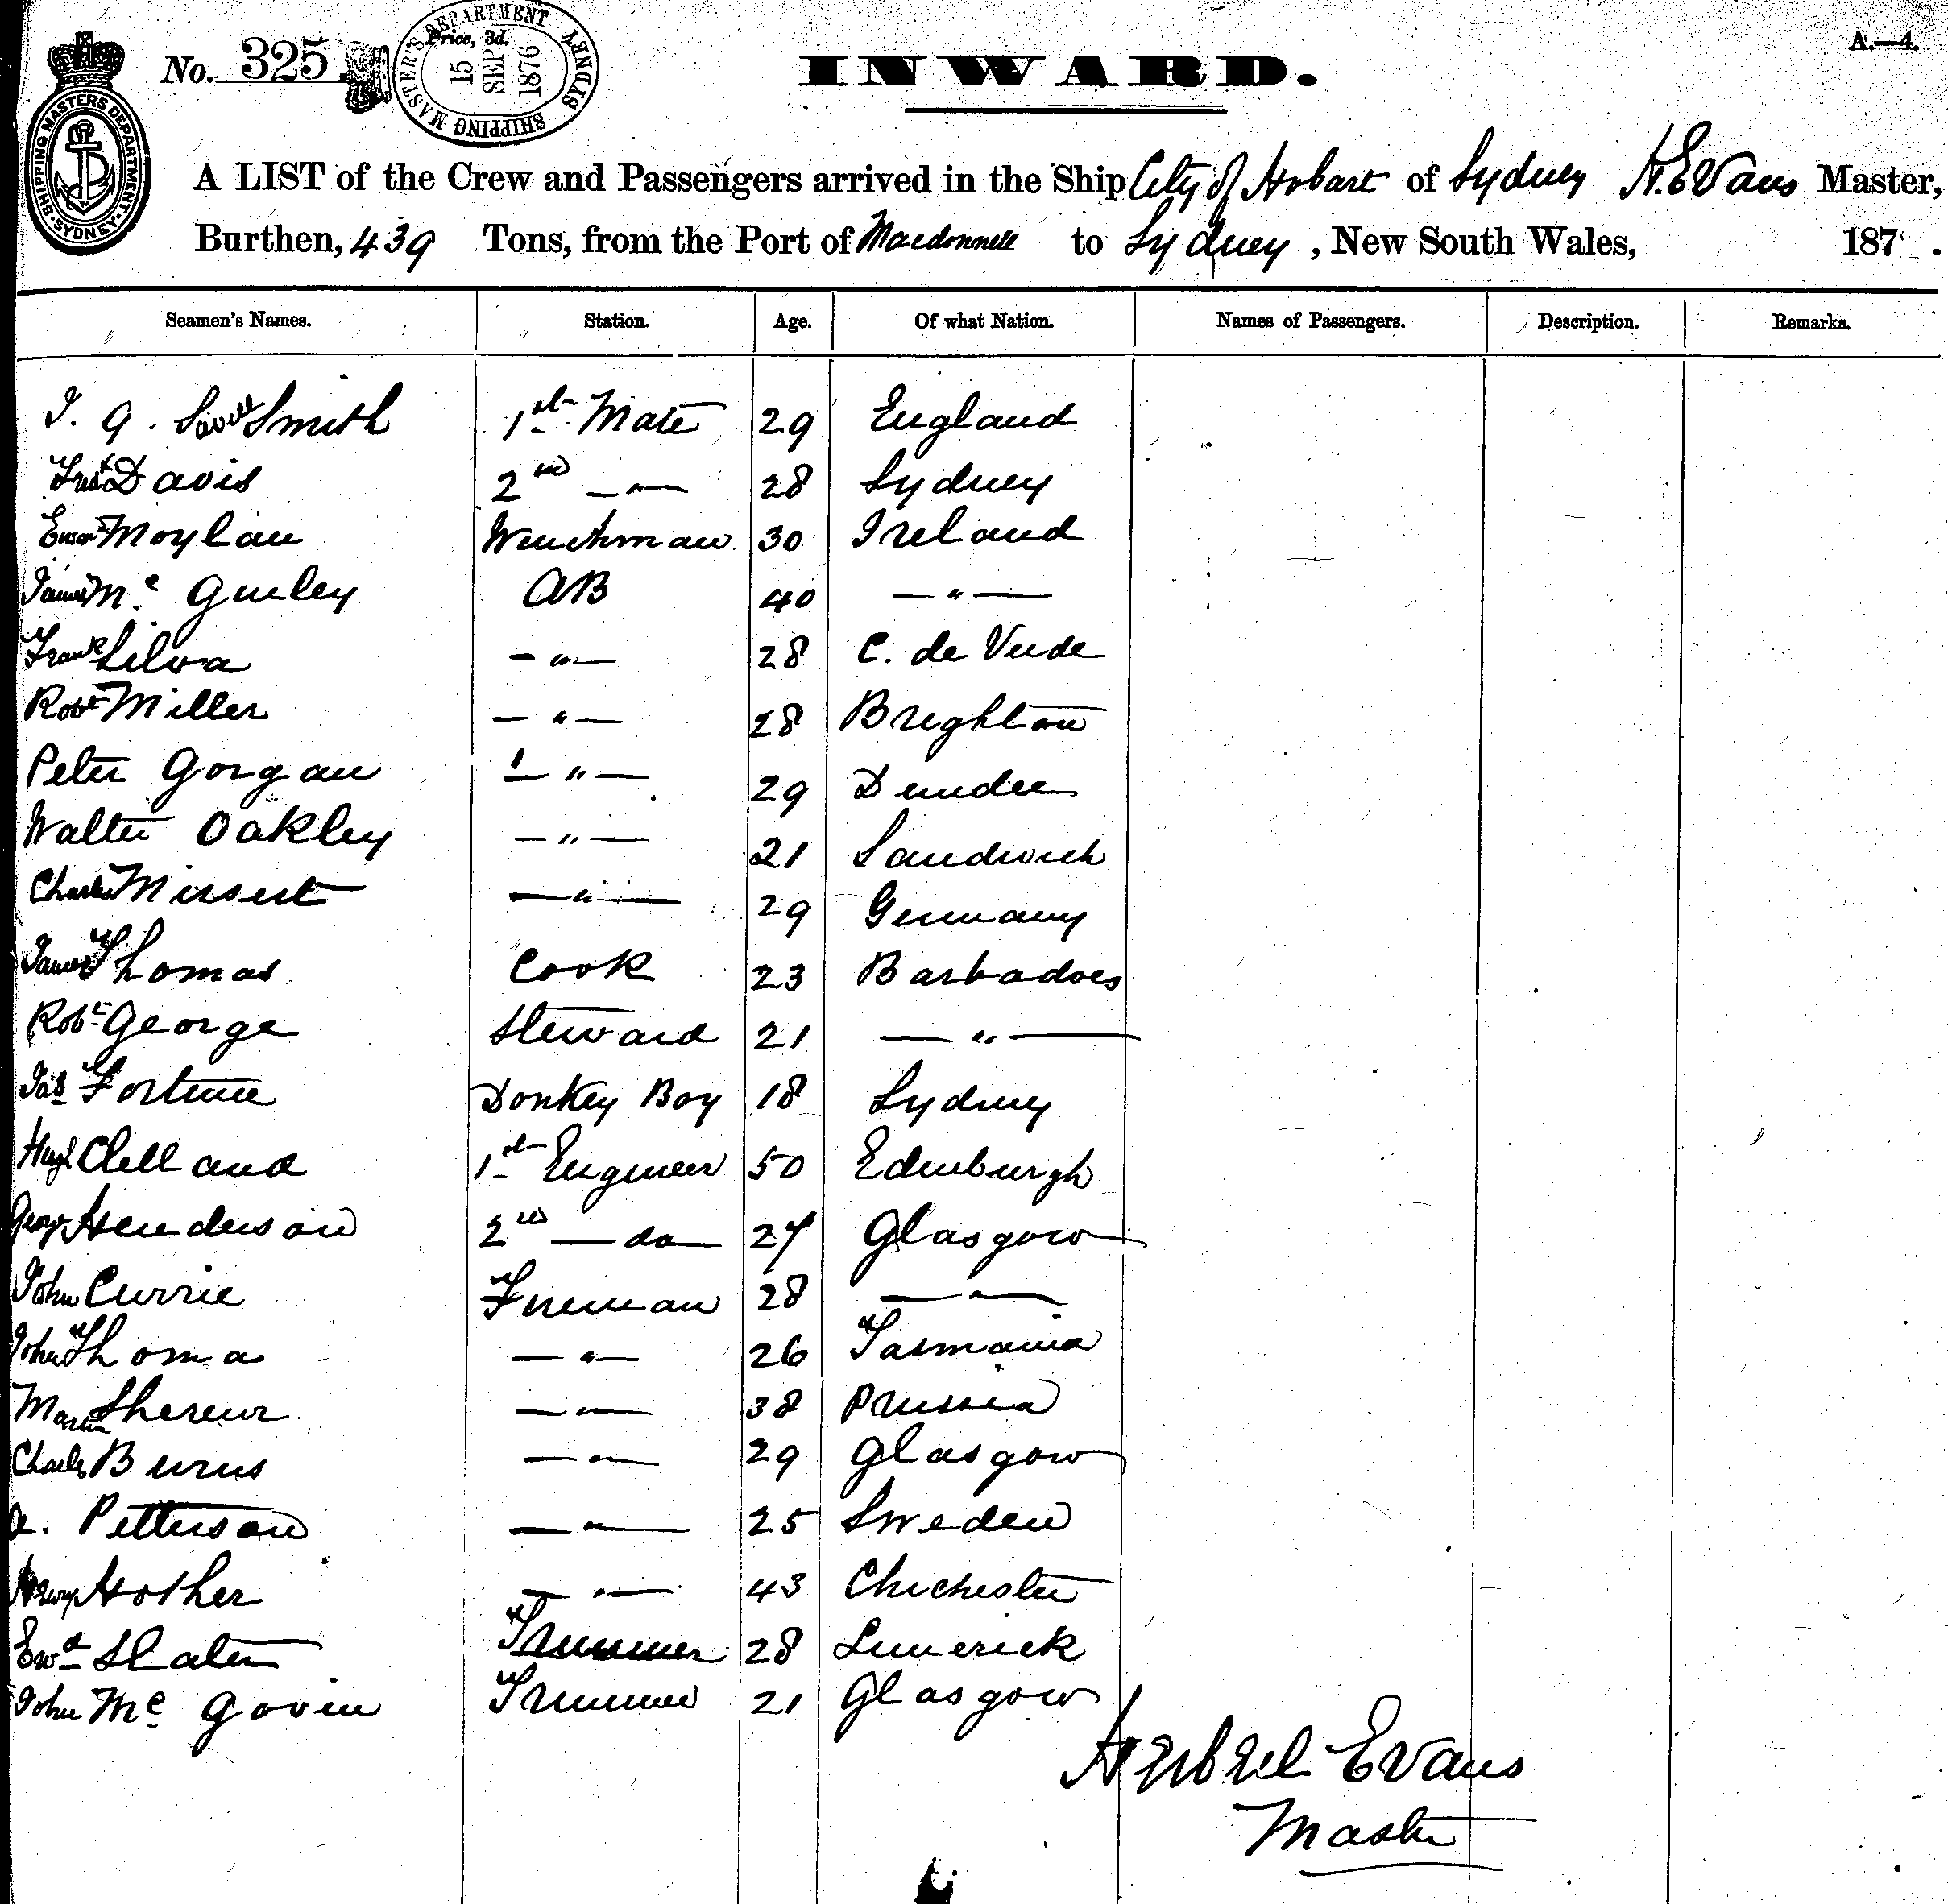 A.—4.
No. 325
SHIPPING MASTER'S DEPARTMENT SYDNEY
Price, 3d.
15 SEP 1876
SHIPPING MASTERS DEPARTMENT · SYDNEY ·
INWARD.
A LIST of the Crew and Passengers arrived in the Ship City of Hobart of Sydney H. Evans Master,
Burthen, 439 Tons, from the Port of Macdonnell to Sydney, New South Wales, 187 .
Seamen's Names. Station. Age. Of what Nation. Names of Passengers. Description. Remarks.
J. G. Smith 1st Mate 29 England
Davis 2nd —"— 28 Sydney
Moylan Winchman 30 Ireland
James Mc Ginley AB 40 —"—
Frank Silva —"— 28 C. de Verde
Robt Miller —"— 28 Brighton
Peter Gorgan —"— 29 Dundee
Walter Oakley —"— 21 Sandwich
Charles Missert —"— 29 Germany
James Thomas Cook 23 Barbadoes
Robt George Steward 21 —"—
Jas Fortune Donkey Boy 18 Sydney
Hugh Clelland 1st Engineer 50 Edinburgh
George Henderson 2nd —do— 27 Glasgow
John Currie Fireman 28 —"—
John Thoma —"— 26 Tasmania
Martin —"— 38 Prussia
Charles Burns —"— 29 Glasgow
A. Petterson —"— 25 Sweden
Henry Hother —"— 43 Chichester
Ewd Slater Trimmer 28 Limerick
John Mc Govin Trimmer 21 Glasgow
Herbert Evans
Master